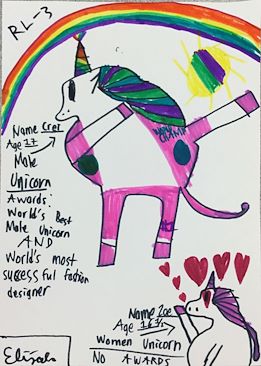 RL-3
Name
Age 27
Male
Unicorn
Awards:
World's Best
Male Unicorn
AND
World's most
successful fashion
designer
Name Zoe
Age 16½
Women Unicorn
NO AWARDS